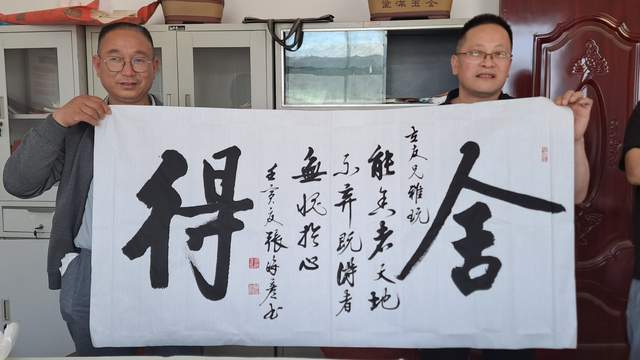 舍
友兄雅玩
能舍者天地
不弃既得者
無愧於心
得
壬寅夏張海彦书